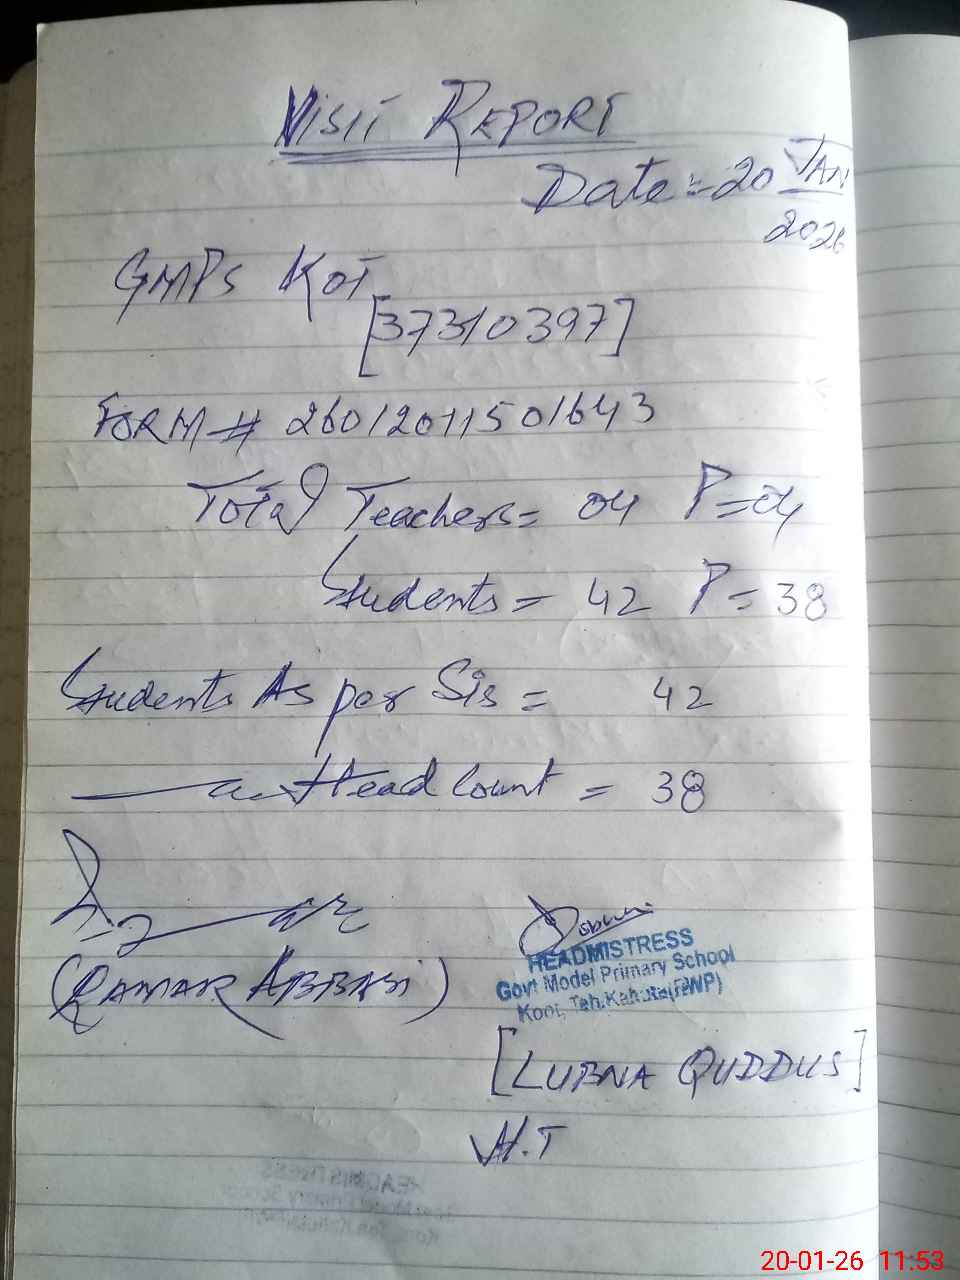 VISIT REPORT
Date = 20 JAN
2026
GMPS KOT
[37310397]
FORM # 26012011501643
Total Teachers = 04 P = 04
Students = 42 P = 38
Students As per Sis = 42
Head Count = 38
(QAMAR ABBASI)
HEADMISTRESS
Govt Model Primary School
Koot, Teh.Kahuta(RWP)
[LUBNA QUDDUS]
H.T
20-01-26 11:53